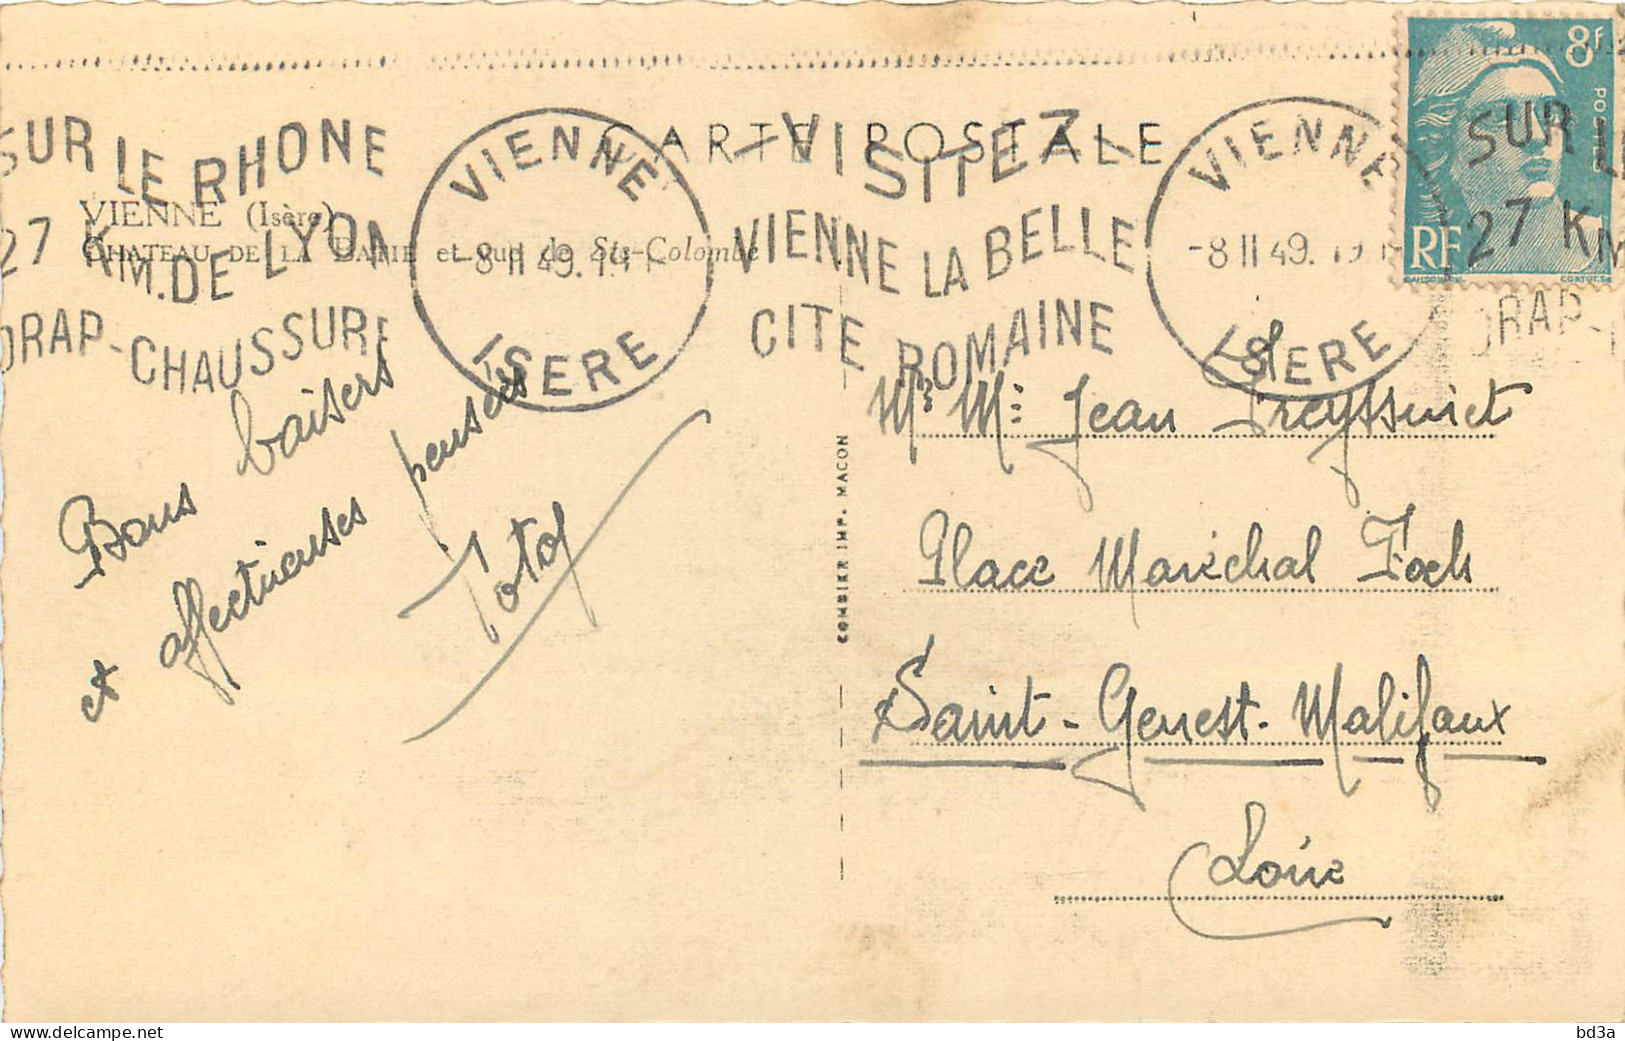 CARTE POSTALE
VIENNE (Isère)
CHATEAU DE LA BATIE et vue de Ste-Colombe
SUR LE RHONE
27 KM. DE LYON
DRAP-CHAUSSURE
VIENNE
-8 II 49.
ISERE
-VISITEZ-
VIENNE LA BELLE
CITE ROMAINE
VIENNE
-8 II 49. 19
ISERE
SUR LE
27 KM
DRAP-
8f
POSTES
RF
GANDON
CORTOT.Sc
Bons baisers
et affectueuses pensées
Totof
COMBIER IMP. MACON
Mr Me: Jean Freyssinet
Place Maréchal Foch
Saint-Genest-Malifaux
Loire
bd3a